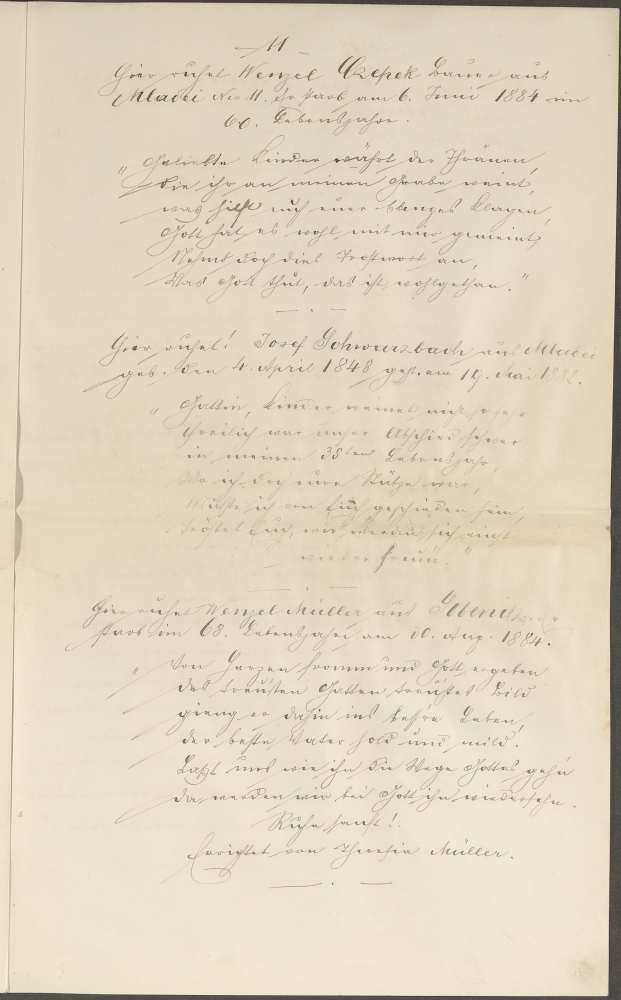 11
Hier ruhet Wenzel Czepek Bauer aus
Mladei Nro 11. Er starb am 6. Juni 1884 im
60. Lebensjahre.
"Geliebte Kinder währt der Thränen,
die ihr an meinem Grabe weint,
was hilft euch euer banges Klagen,
Gott hat es wohl mit mir gemeint,
Nehmt doch dies Trostwort an,
Was Gott thut, das ist wohlgethan."
Hier ruhet! Josef Schwarzbach aus Mladei
geb. den 4. April 1848 gest. am 19. Mai 1882.
"Gattin, Kinder weinet nicht so sehr
Freilich war unser Abschied schwer
in meinem 35ten Lebensjahr,
Wo ich doch eure Stütze war,
Mußte ich von Euch geschieden sein,
Tröstet Euch, wir werden sich einst
wieder freun."
Hier ruhet Wenzel Müller aus
starb im 68. Lebensjahre am 20. Aug. 1884.
"Von Herzen fromm und Gott ergeben
des treusten Gatten treustes Bild
gieng er dahin ins bess're Leben,
der beste Vater hold und mild.
Laßt uns wie ihn die Wege Gottes gehn
da werden wir bei Gott ihn wiedersehn.
Ruhe sanft!
Errichtet von Theresia Müller.